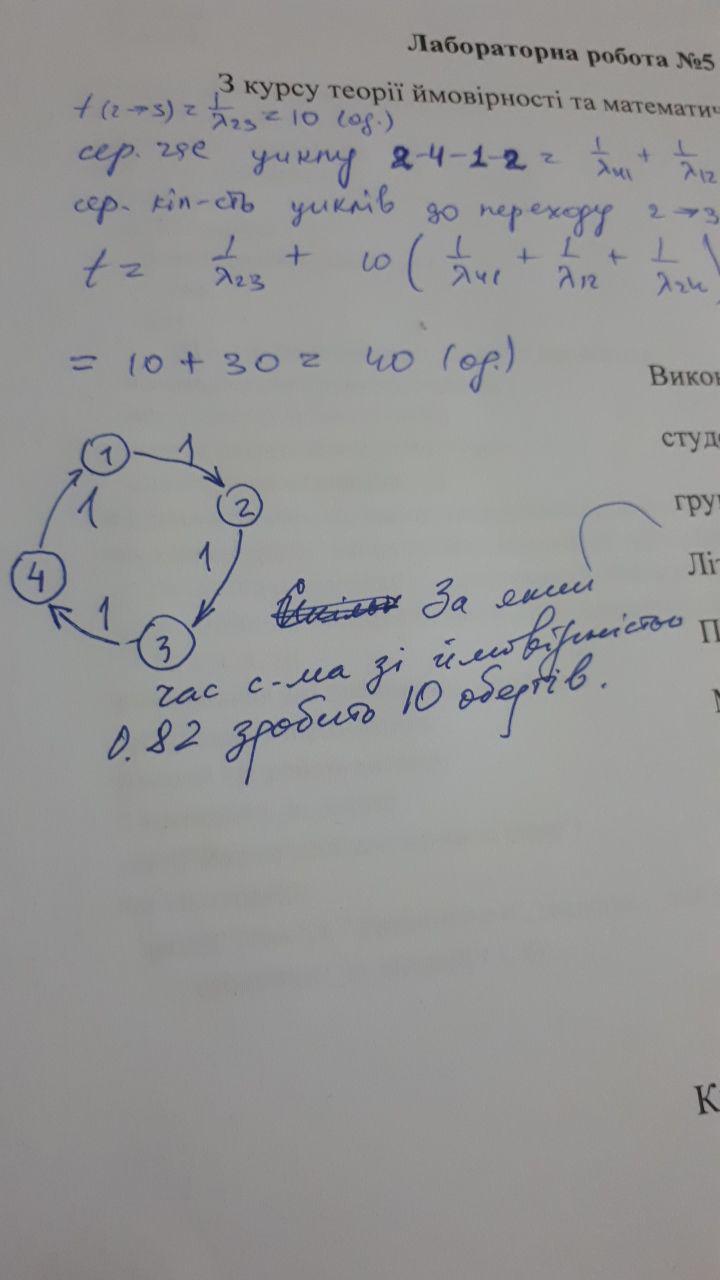 Лабораторна робота №5
З курсу теорії ймовірності та математич
t (2→3) = 1/λ23 = 10 (од.)
сер. час циклу 2-4-1-2 = 1/λ41 + 1/λ12
сер. кіл-сть циклів до переходу 2→3
t = 1/λ23 + 10 ( 1/λ41 + 1/λ12 + 1/λ24 )
= 10 + 30 = 40 (од.)
Викон
студ
груп
Літ
П
1 1 2
1 1
4 1 3
За який
час с-ма зі ймовірністю
0.82 зробить 10 обертів.
К